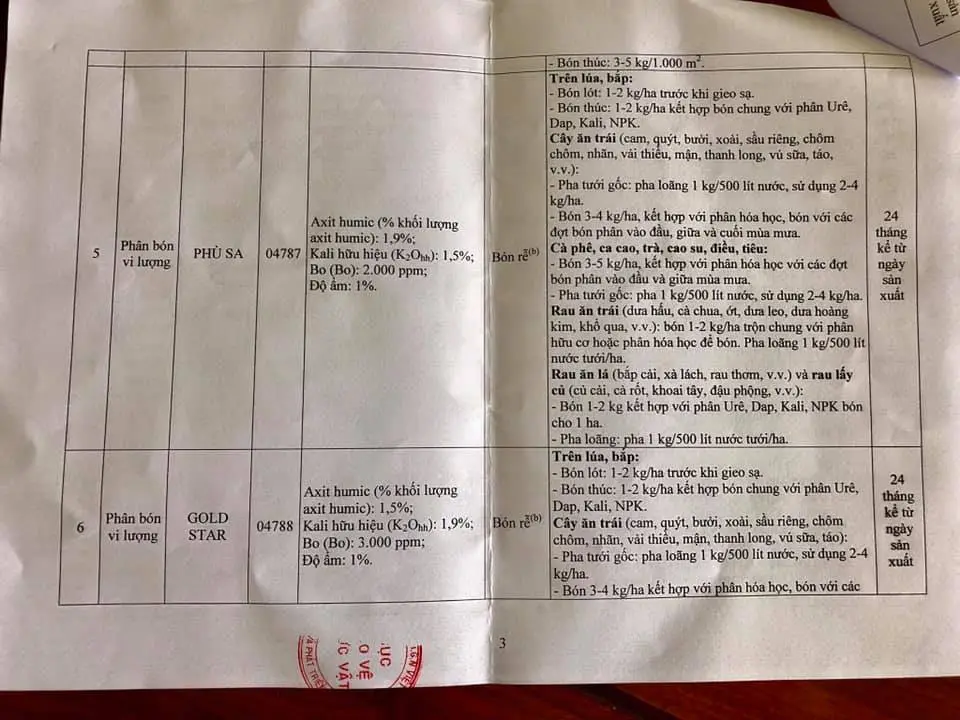 sản
xuất
- Bón thúc: 3-5 kg/1.000 m².
5
Phân bón
vi lượng
PHÙ SA
04787
Axit humic (% khối lượng
axit humic): 1,9%;
Kali hữu hiệu (K₂Ohh): 1,5%;
Bo (Bo): 2.000 ppm;
Độ ẩm: 1%.
Bón rễ(b)
Trên lúa, bắp:
- Bón lót: 1-2 kg/ha trước khi gieo sạ.
- Bón thúc: 1-2 kg/ha kết hợp bón chung với phân Urê,
Dap, Kali, NPK.
Cây ăn trái (cam, quýt, bưởi, xoài, sầu riêng, chôm
chôm, nhãn, vải thiều, mận, thanh long, vú sữa, táo,
v.v.):
- Pha tưới gốc: pha loãng 1 kg/500 lít nước, sử dụng 2-4
kg/ha.
- Bón 3-4 kg/ha, kết hợp với phân hóa học, bón với các
đợt bón phân vào đầu, giữa và cuối mùa mưa.
Cà phê, ca cao, trà, cao su, điều, tiêu:
- Bón 3-5 kg/ha, kết hợp với phân hóa học với các đợt
bón phân vào đầu và giữa mùa mưa.
- Pha tưới gốc: pha 1 kg/500 lít nước, sử dụng 2-4 kg/ha.
Rau ăn trái (dưa hấu, cà chua, ớt, dưa leo, dưa hoàng
kim, khổ qua, v.v.): bón 1-2 kg/ha trộn chung với phân
hữu cơ hoặc phân hóa học để bón. Pha loãng 1 kg/500 lít
nước tưới/ha.
Rau ăn lá (bắp cải, xà lách, rau thơm, v.v.) và rau lấy
củ (củ cải, cà rốt, khoai tây, đậu phộng, v.v.):
- Bón 1-2 kg kết hợp với phân Urê, Dap, Kali, NPK bón
cho 1 ha.
- Pha loãng: pha 1 kg/500 lít nước tưới/ha.
24
tháng
kể từ
ngày
sản
xuất
6
Phân bón
vi lượng
GOLD
STAR
04788
Axit humic (% khối lượng
axit humic): 1,5%;
Kali hữu hiệu (K₂Ohh): 1,9%;
Bo (Bo): 3.000 ppm;
Độ ẩm: 1%.
Bón rễ(b)
Trên lúa, bắp:
- Bón lót: 1-2 kg/ha trước khi gieo sạ.
- Bón thúc: 1-2 kg/ha kết hợp bón chung với phân Urê,
Dap, Kali, NPK.
Cây ăn trái (cam, quýt, bưởi, xoài, sầu riêng, chôm
chôm, nhãn, vải thiều, mận, thanh long, vú sữa, táo):
- Pha tưới gốc: pha loãng 1 kg/500 lít nước, sử dụng 2-4
kg/ha.
- Bón 3-4 kg/ha kết hợp với phân hóa học, bón với các
24
tháng
kể từ
ngày
sản
xuất
3
ỤC
O VỆ
C VẬT
PHÁT TRIỂN